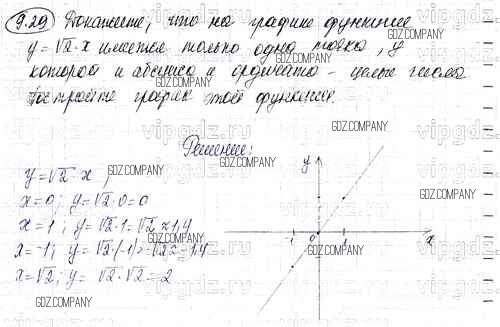 9.29 Докажите, что на графике функции
y = √2 · x имеется только одна точка, у
которой и абсцисса и ордината – целые числа
Постройте график этой функции.
Решение:
y = √2 · x ;
x = 0 ; y = √2 · 0 = 0
x = 1 ; y = √2 · 1 = √2 ≈ 1,4
x = -1 ; y = √2 · (-1) = -√2 ≈ -1,4
x = √2 ; y = √2 · √2 = 2
y
-1 0 1 x
GDZ.COMPANY
vipgdz.ru